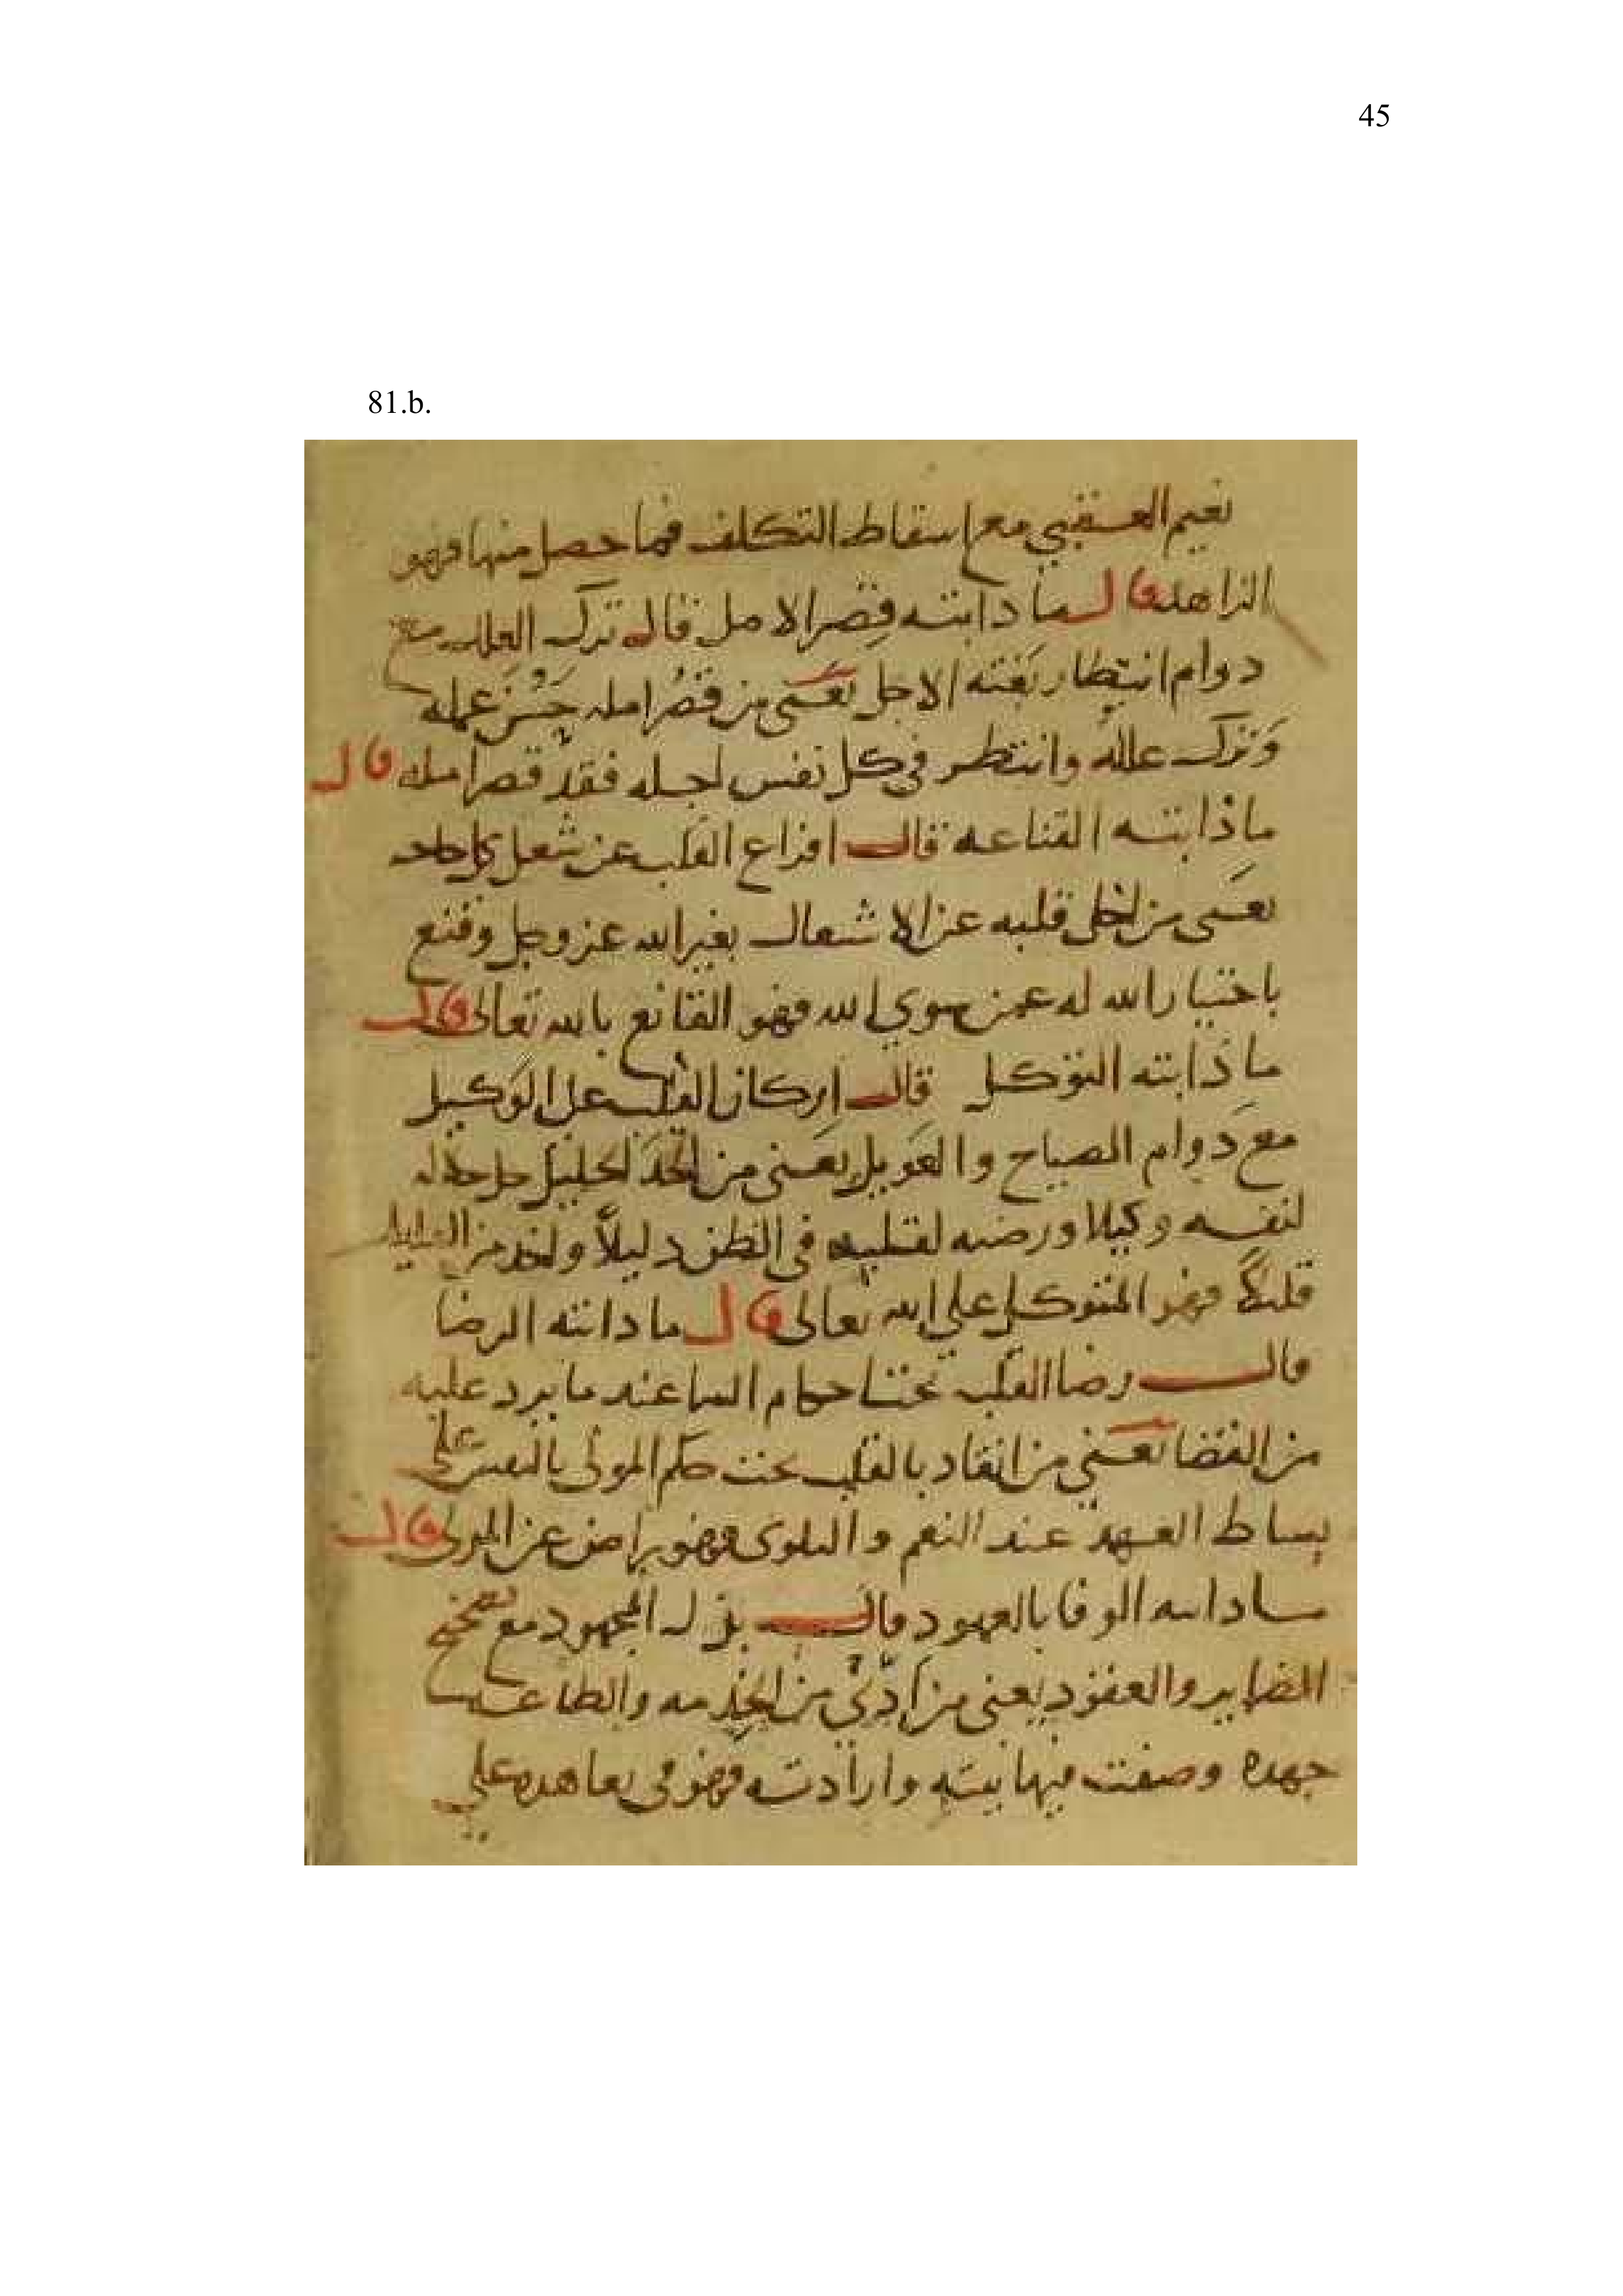 45
81.b.
نعيم العقبي مع اسقاط التكلف فما حصل منها فهو
الزاهد قال ما ذا بته قصر الامل قال ترك العلل مع
دوام انتظار بغته الاجل يعني من قصر امله حسن عمله
وترك علله وانتظر في كل نفس اجله فقد قصر امله قال
ماذا بته القناعه قال افراغ القلب عن شغل كل
يعني من اخلى قلبه عن الاشعال بغير الله عز وجل وقنع
باختيار الله له عمن سوي الله فهو القانع بالله تعالى قال
ما ذا بته التوكل قال اركان القلب على الوكيل
مع دوام الصياح والعويل يعني من اتخذ الجليل جل جلاله
لنفسه وكيلا ورضيه لقلبه في الظن دليلا واتخذ من
فهو المتوكل علي الله تعالى قال ما ذا بته الرضا
قال رضا القلب تحت احكام عند ما يرد عليه
من القضا يعني من انقاد بالقلب تحت حكم المولى بالنفس على
بساط العهد عند النعم والبلوى فهو راض عن المولى قال
ما ذا بته الوفا بالعهود قال بذل المجهود مع تصحيح
الضماير والعقود يعني من ادى من الخدمه والطاعه
جهده وصفت فيها نيته وارادته فهو في معاهده علي